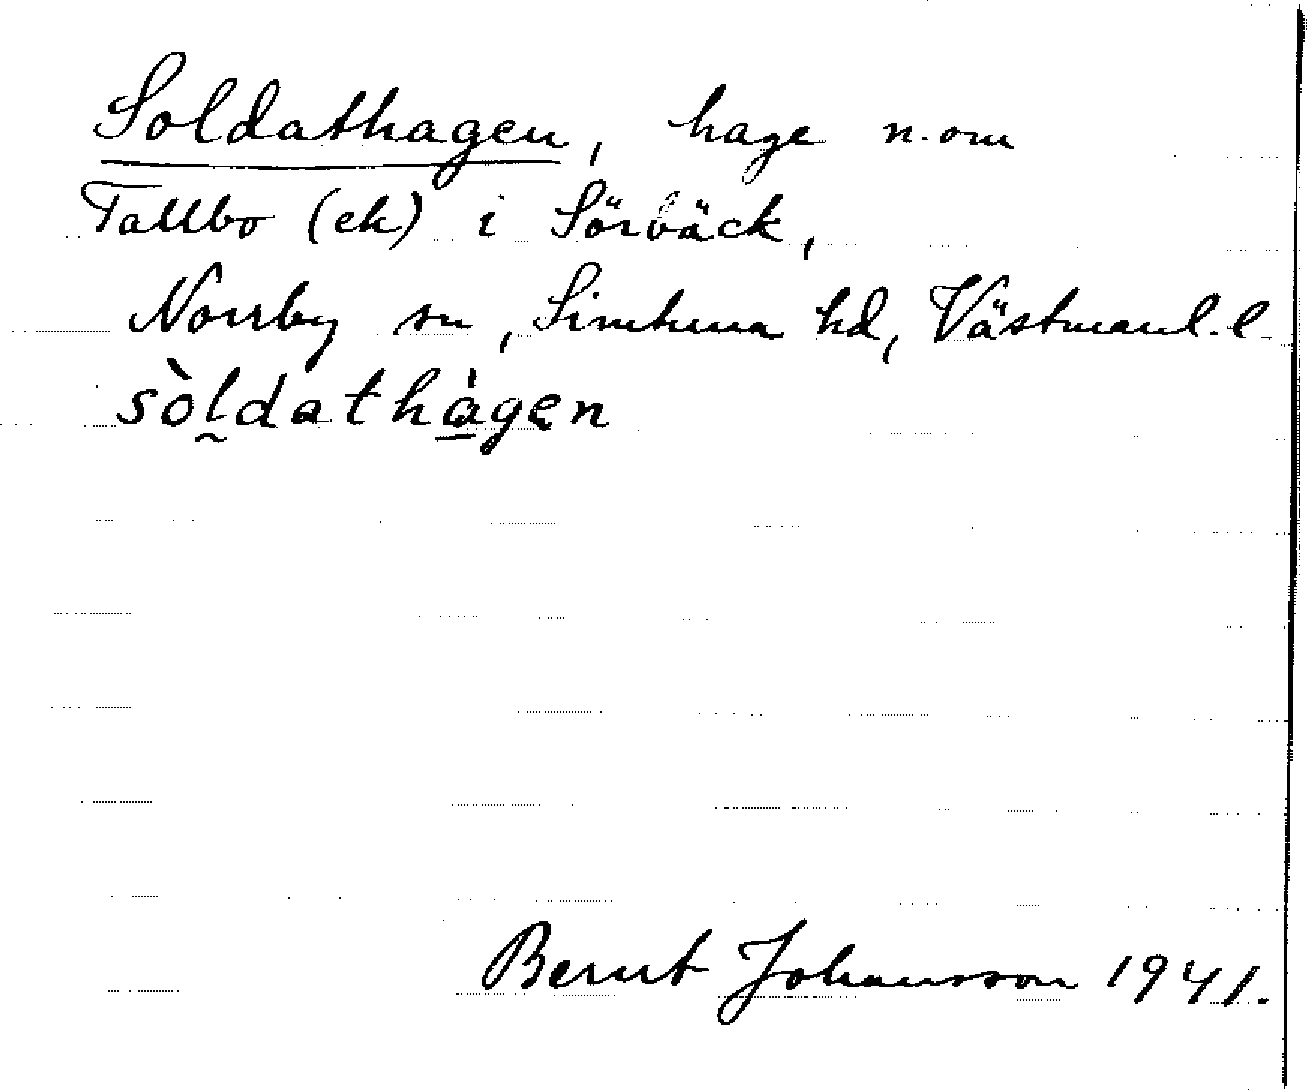 Soldathagen, hage n. om
Tallbo (ek) i Sörbäck,
Norrby sn, Simtuna hd, Västmanl. l.
sòl̰dathàgen
Bernt Johansson 1941.